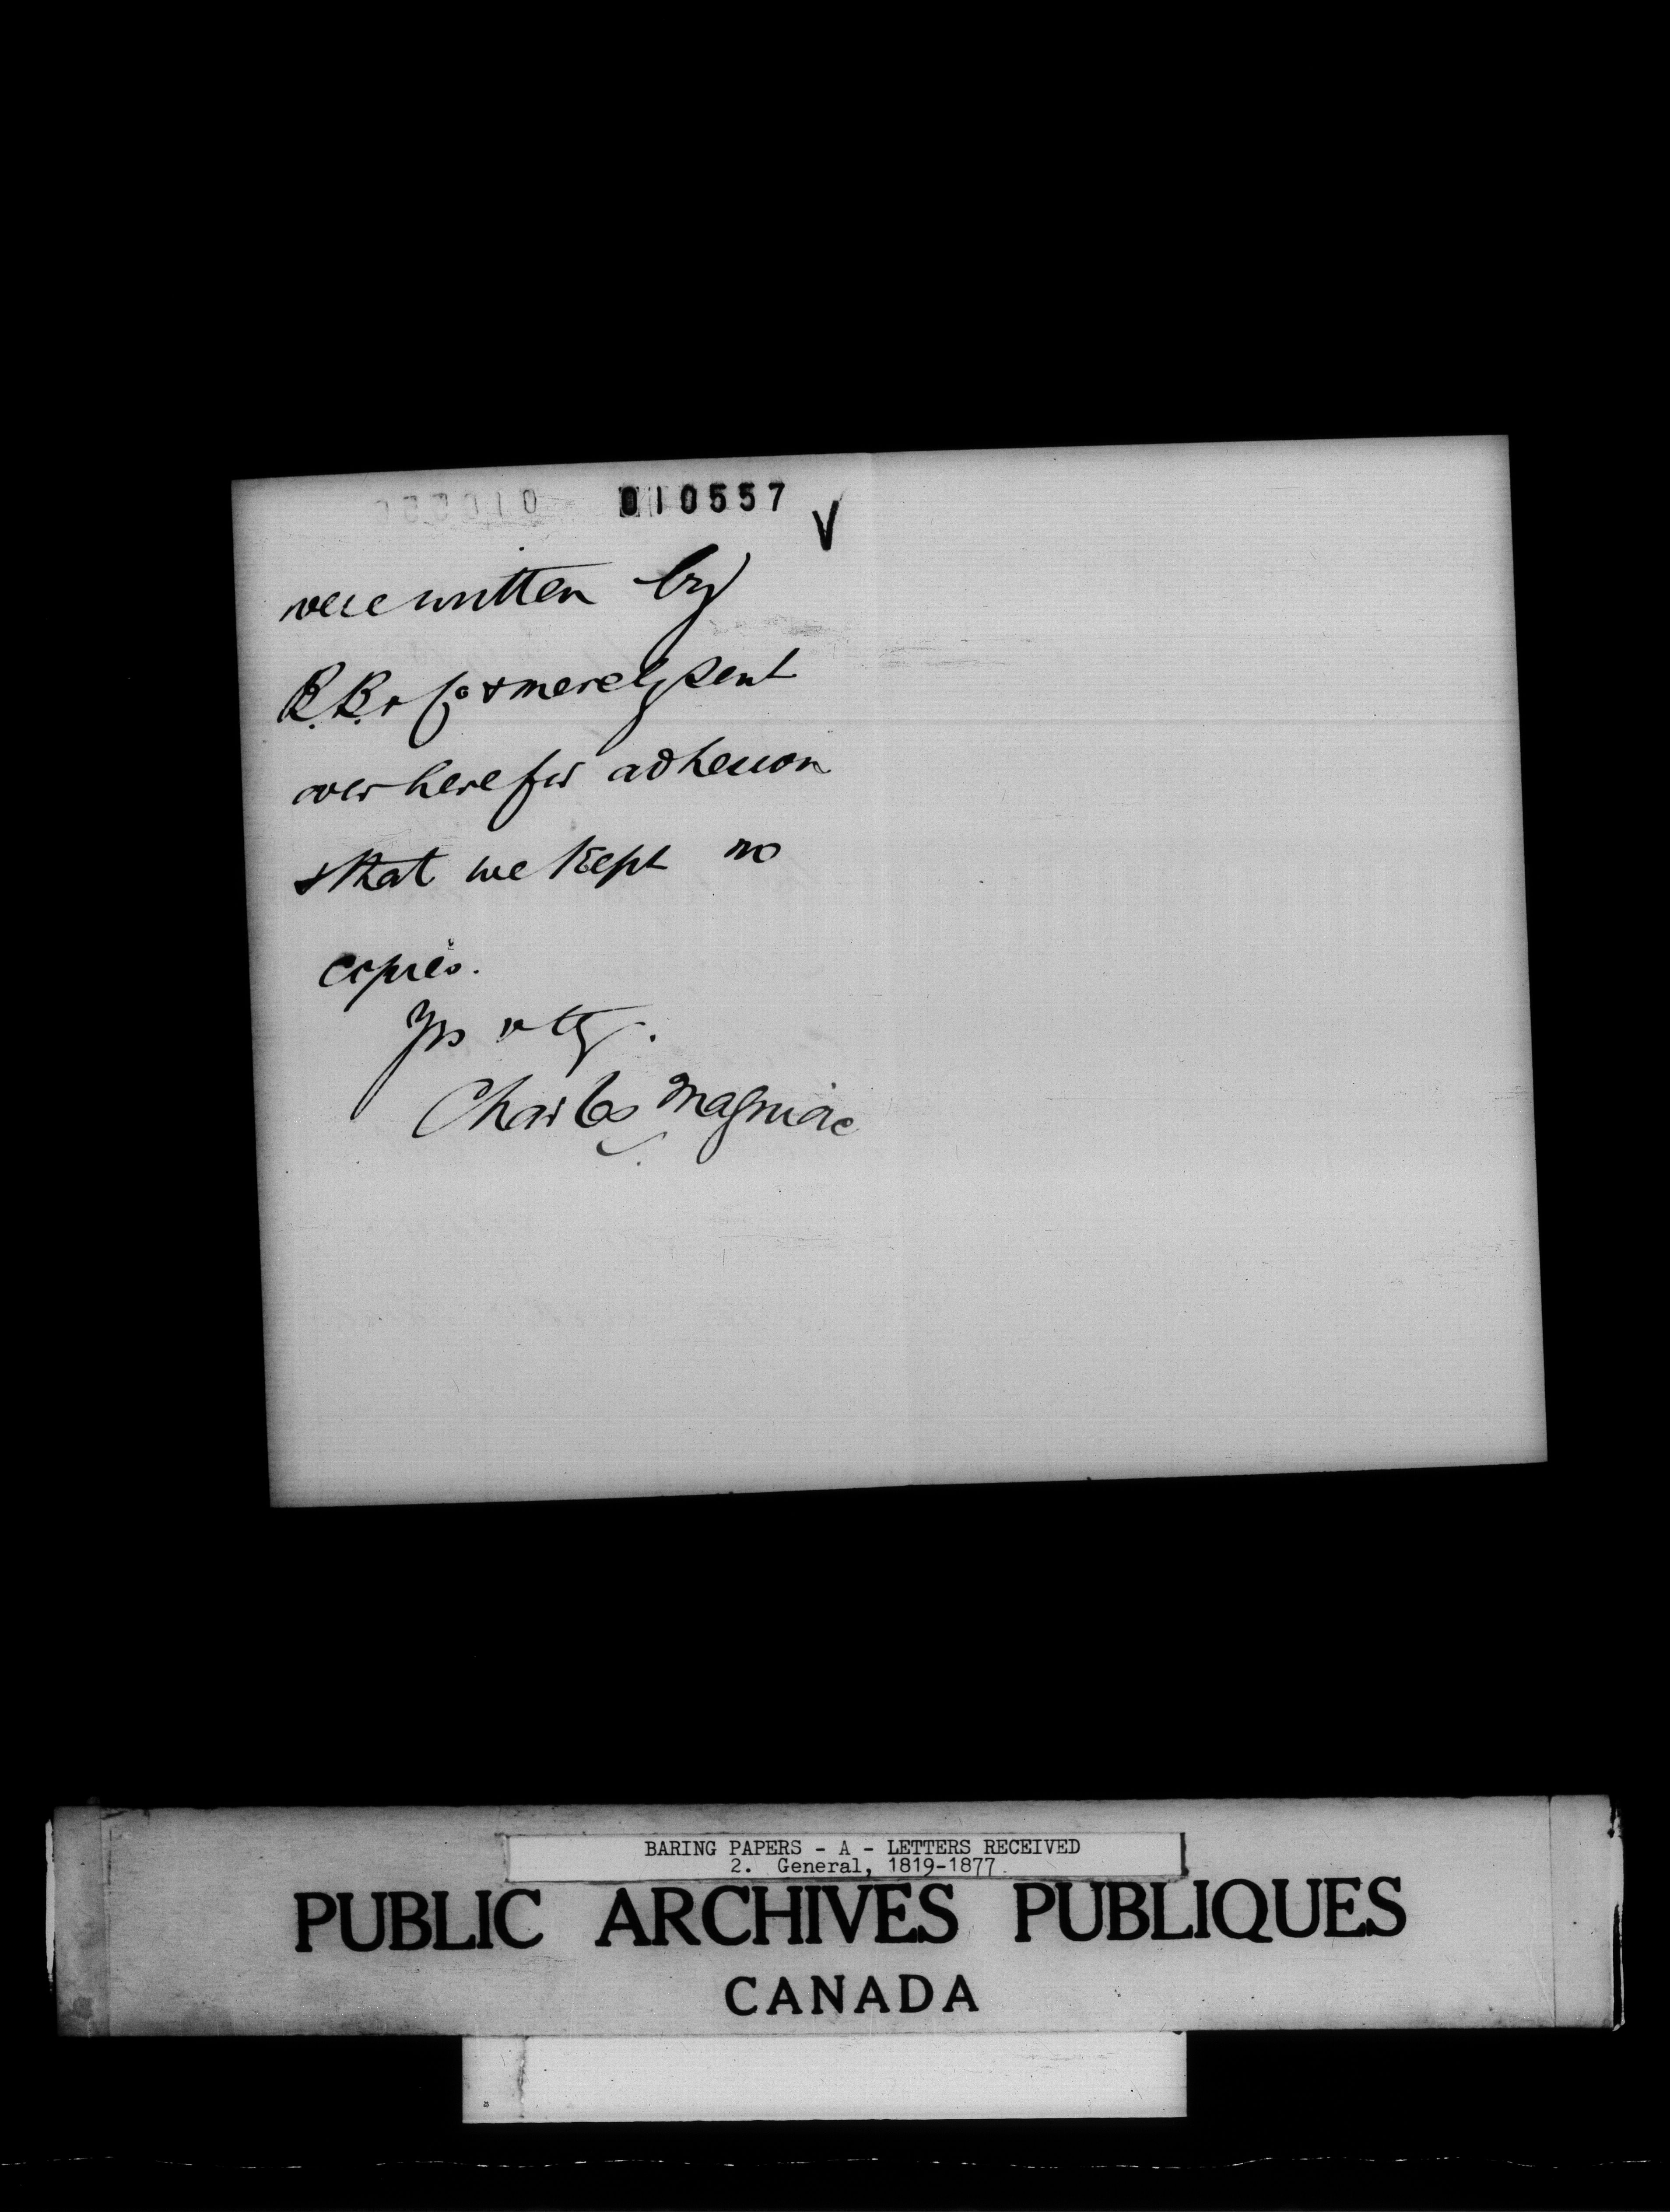 010557
were written by
B.B. & Co & merely sent
over here for adhesion
& that we kept no
copies.
Yrs
Charles Magniac
BARING PAPERS - A - LETTERS RECEIVED
2. General, 1819-1877.
PUBLIC ARCHIVES PUBLIQUES
CANADA